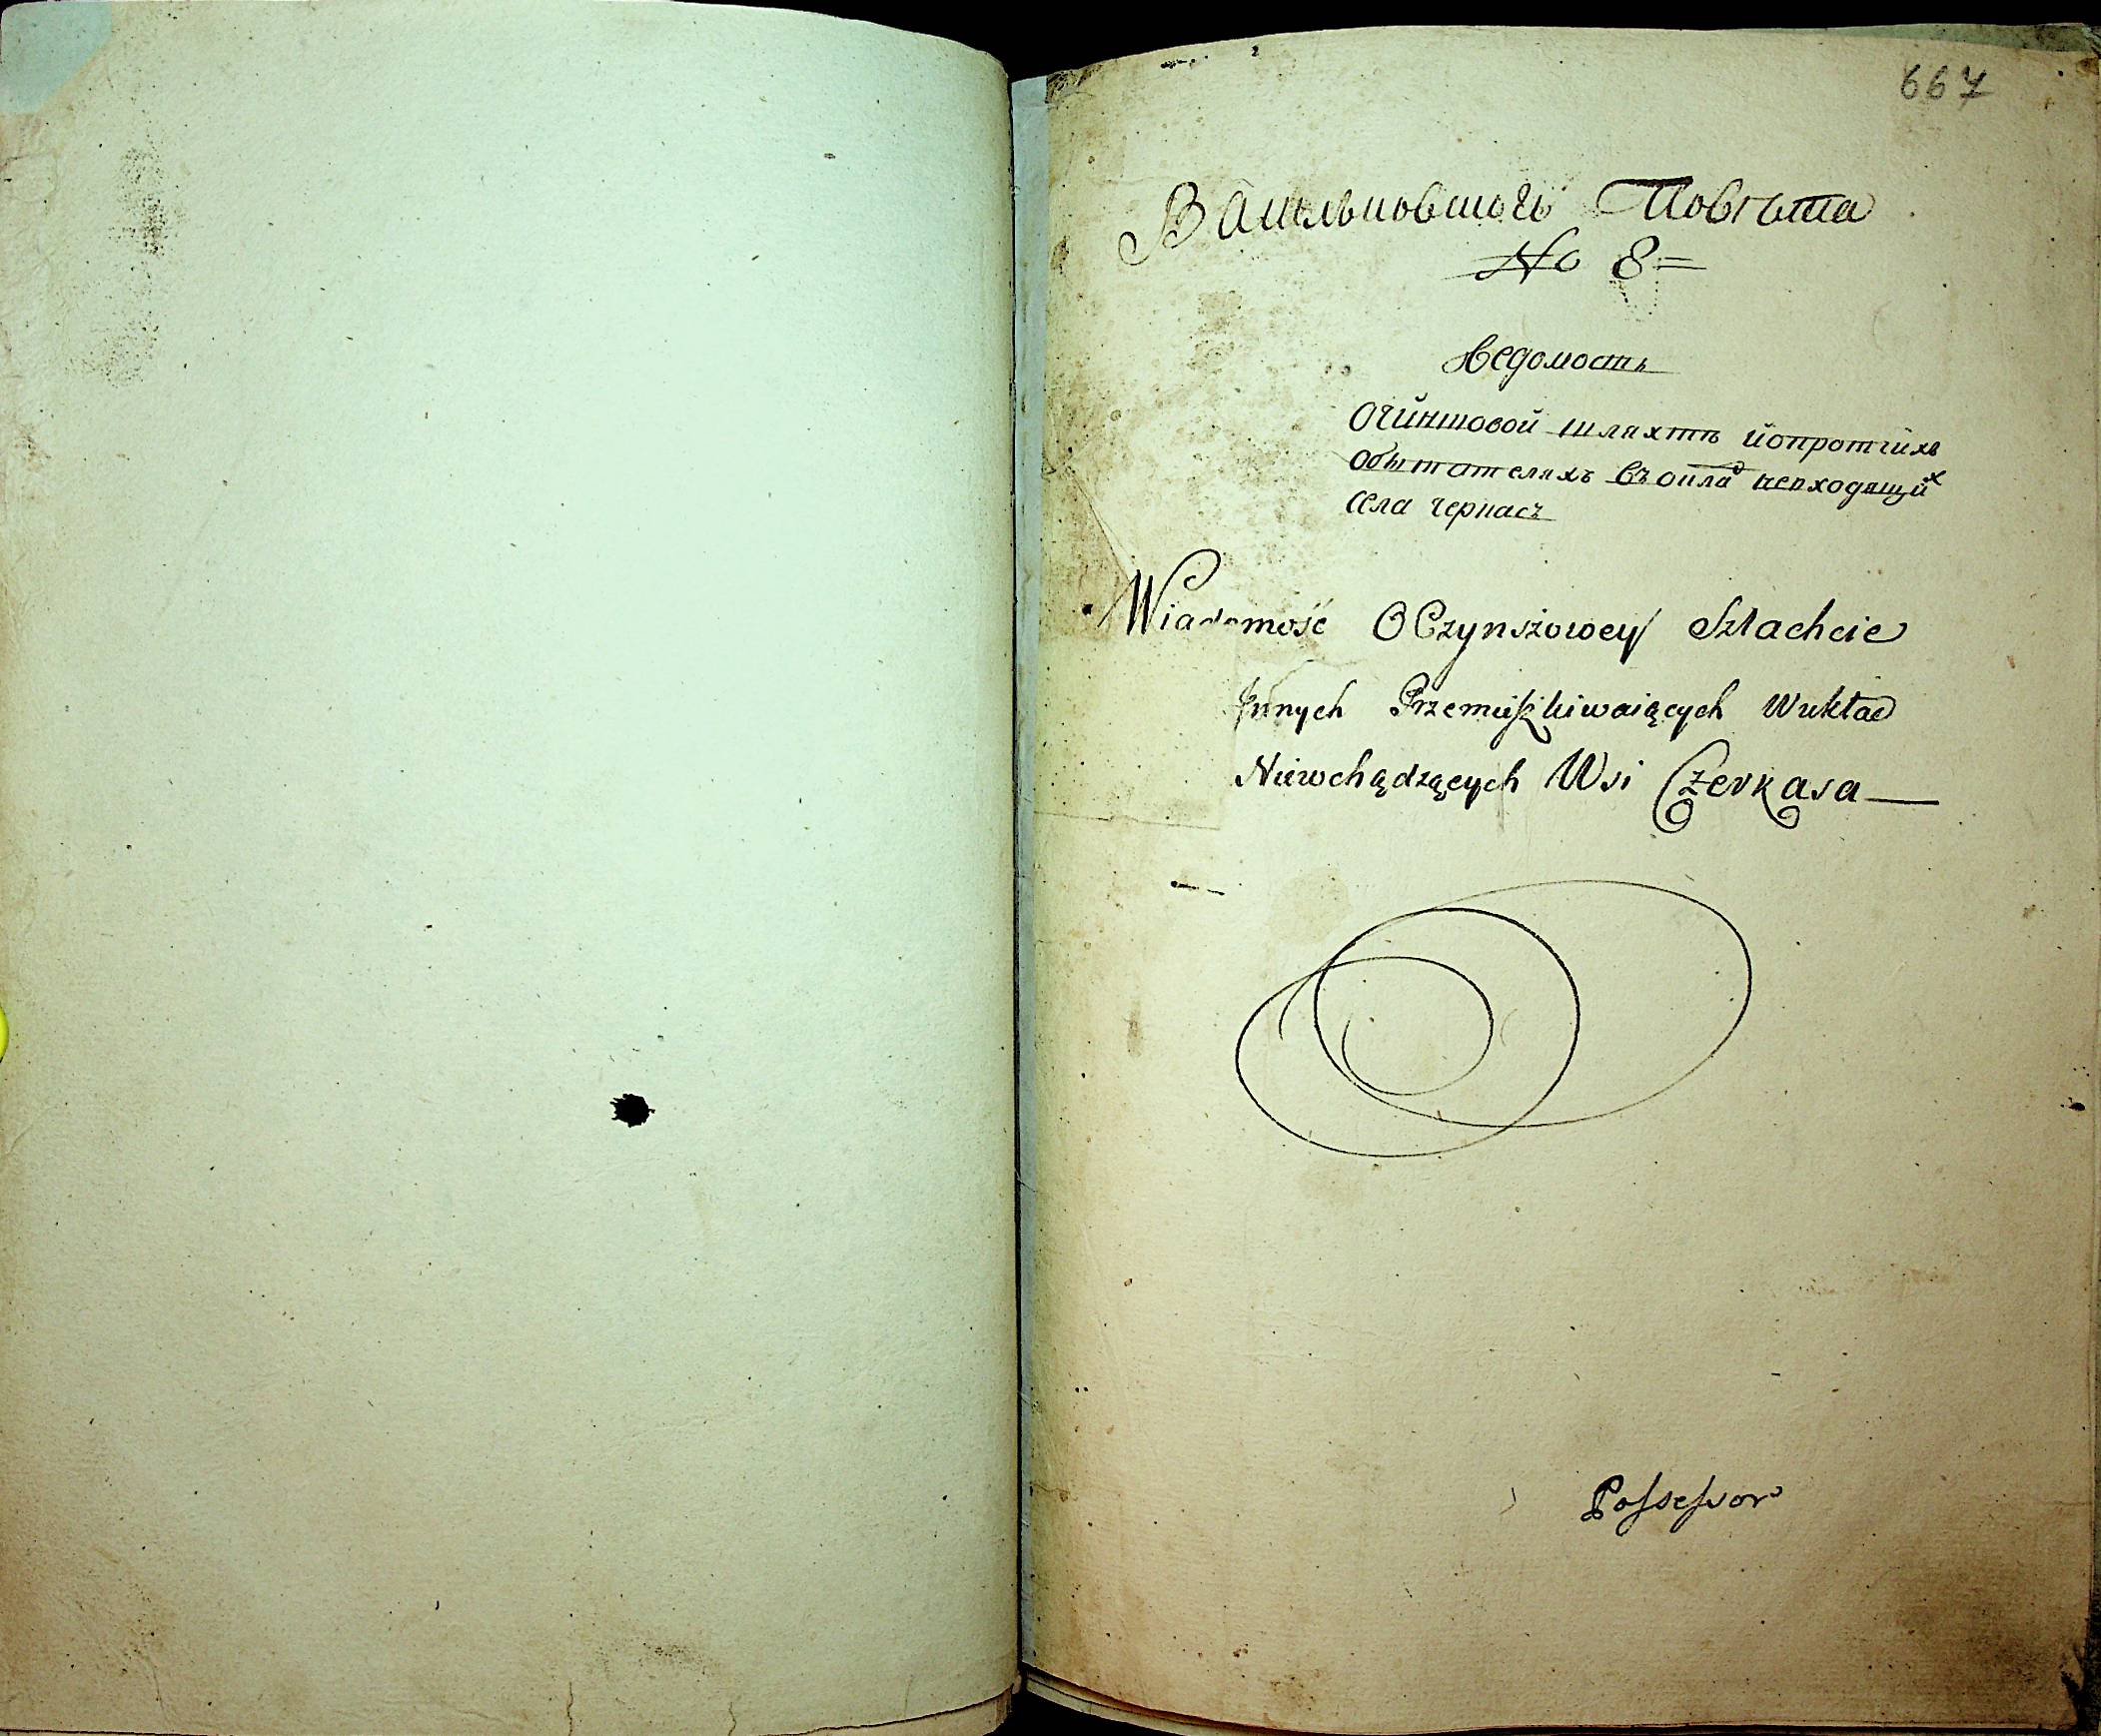 667
Васильковскогъ Повѣта
No 8=
Ведомость
Очиншовой шляхтѣ йопротчихъ
Обытателяхъ въокладъ невходящих
села черкасъ
Wiadomość O Czynszowey Szlachcie
Jnnych Przemiszkiwaiących Wukład
Niewchądzących Wsi Czerkasa
Possessor